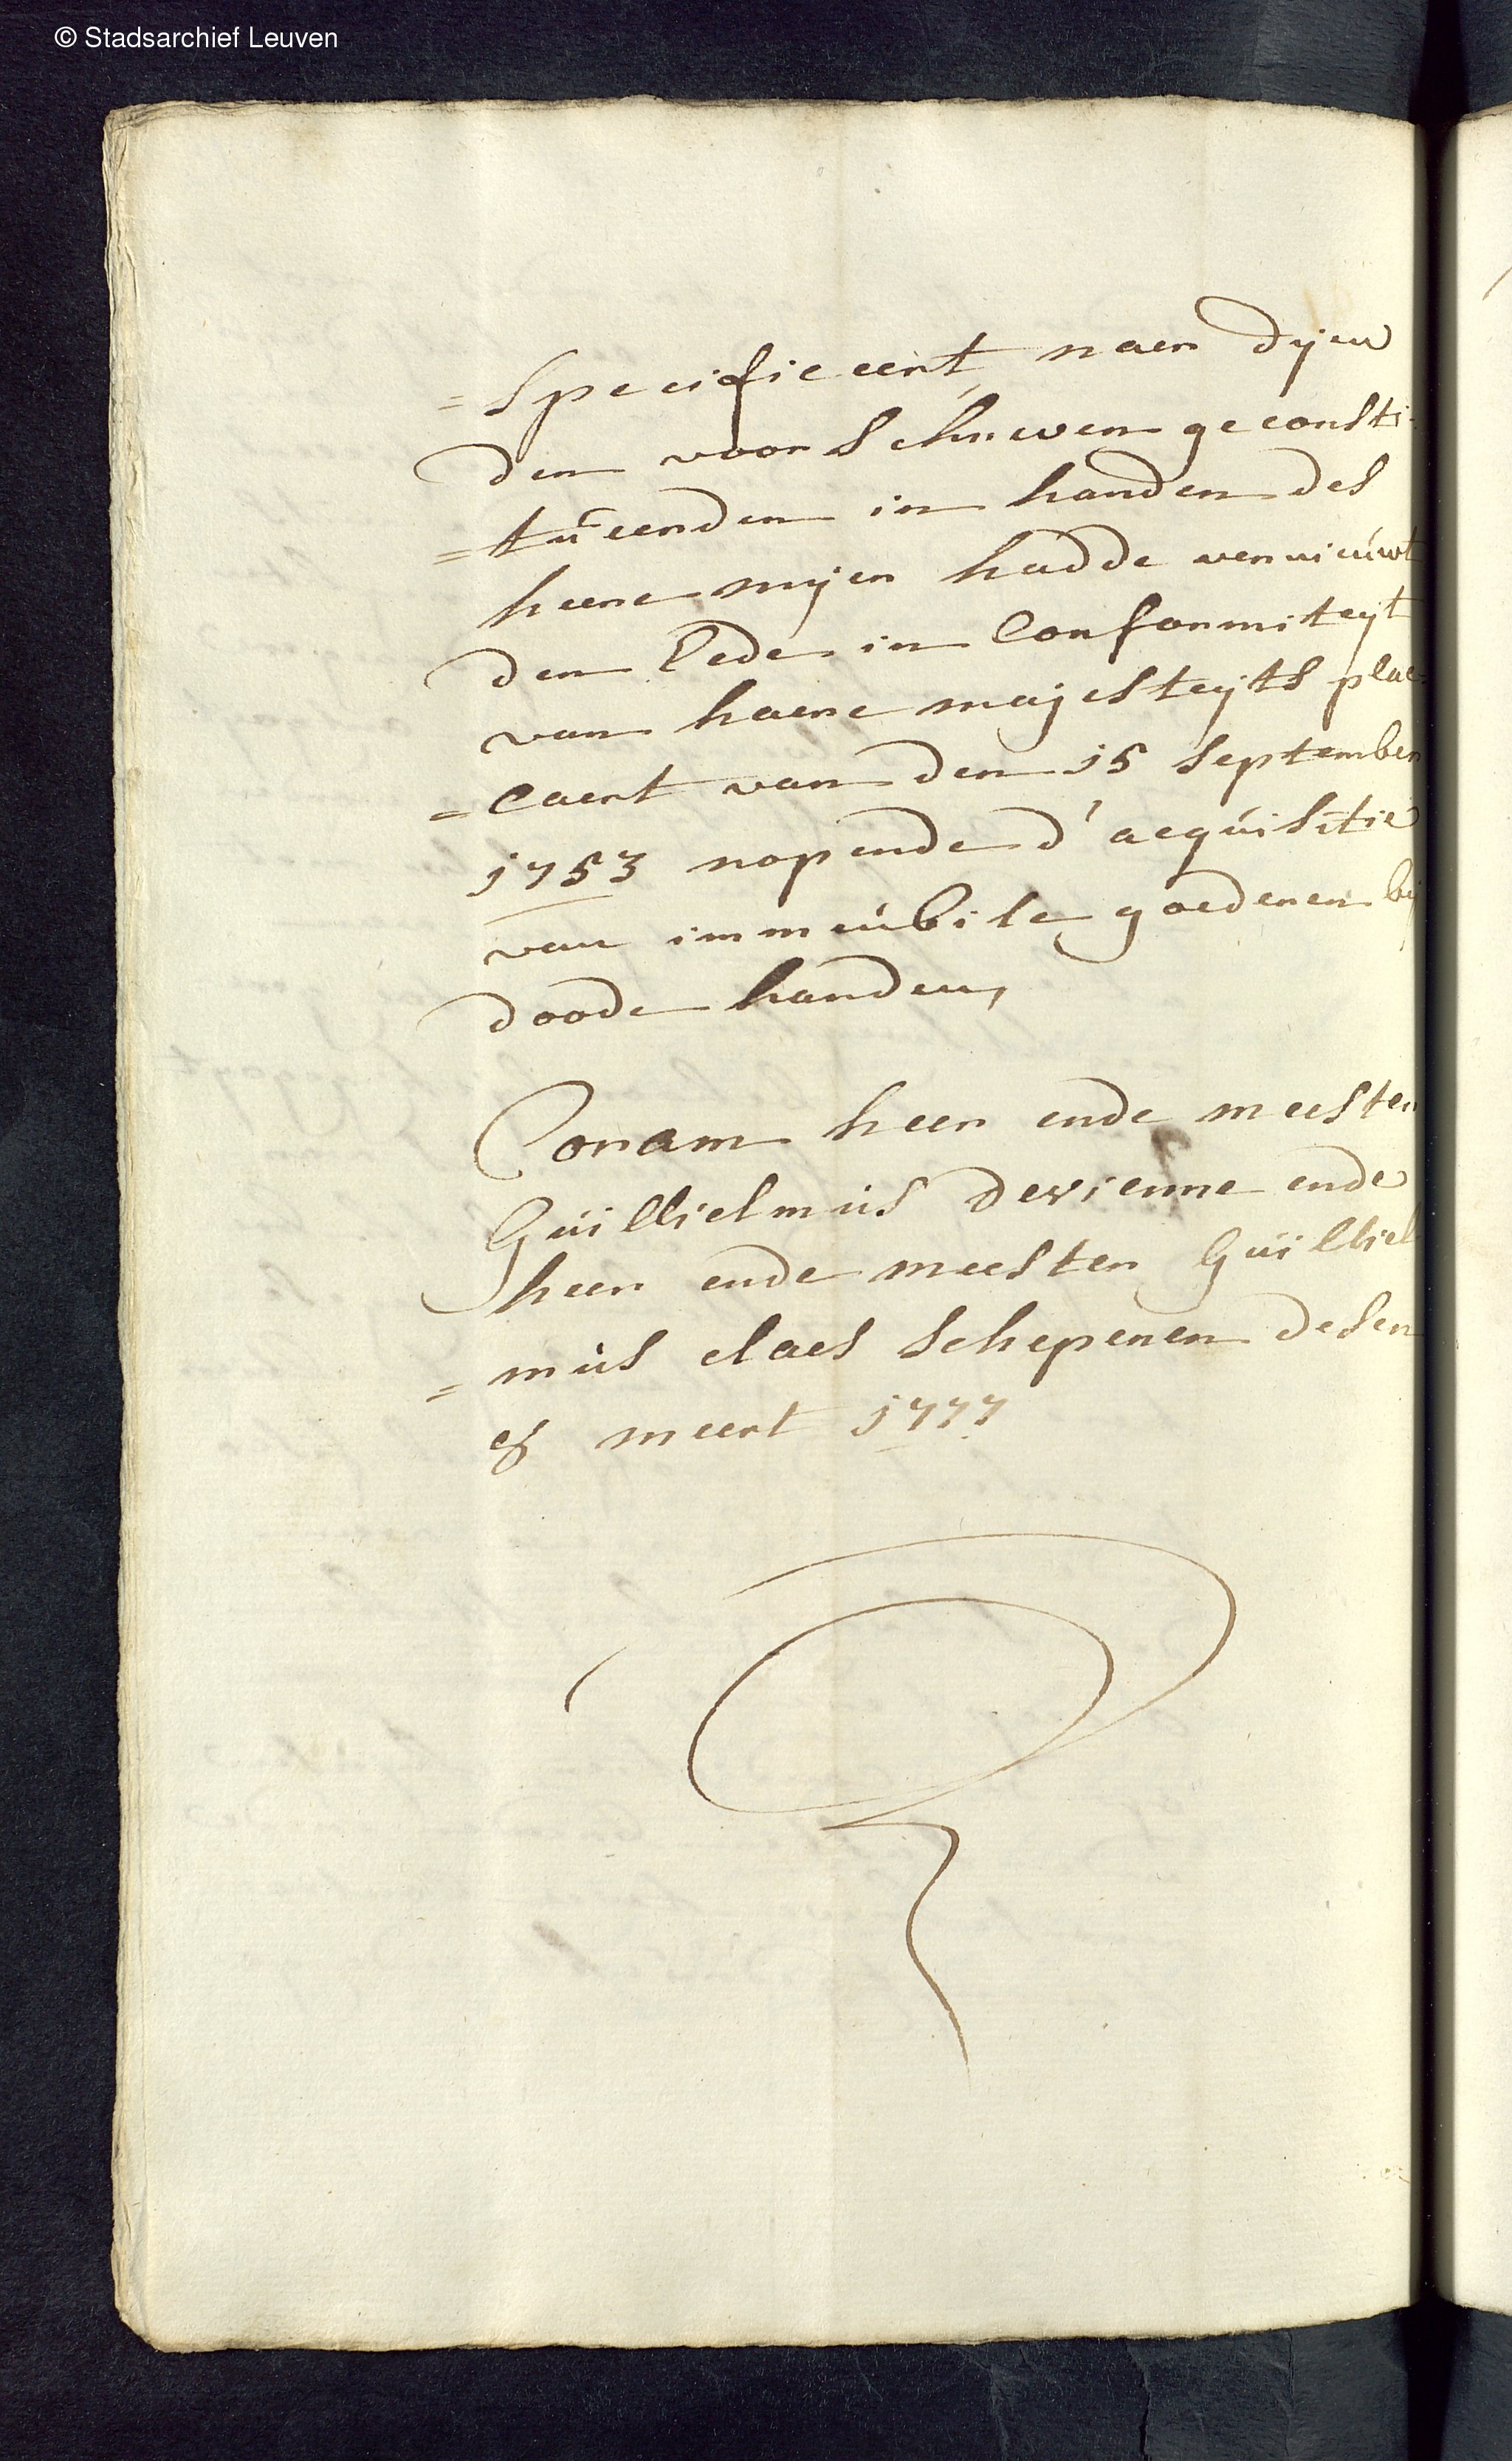 © Stadsarchief Leuven
= Specificeert, naer dyen
den voorschreven geconsti-
= tueerden in handen des
heere myer hadde vernieuwt
den Eede in Conformiteyt
van haere majesteyts plac-
= Caert van den 15 September
1753 nopende d'acquisitie
van immeubile goederen by
doode handen,
Coram heer ende meester
Guilliel mus devienne ende
heer ende meester Guilliel
= mus claes Schepenen desen
meert 1777